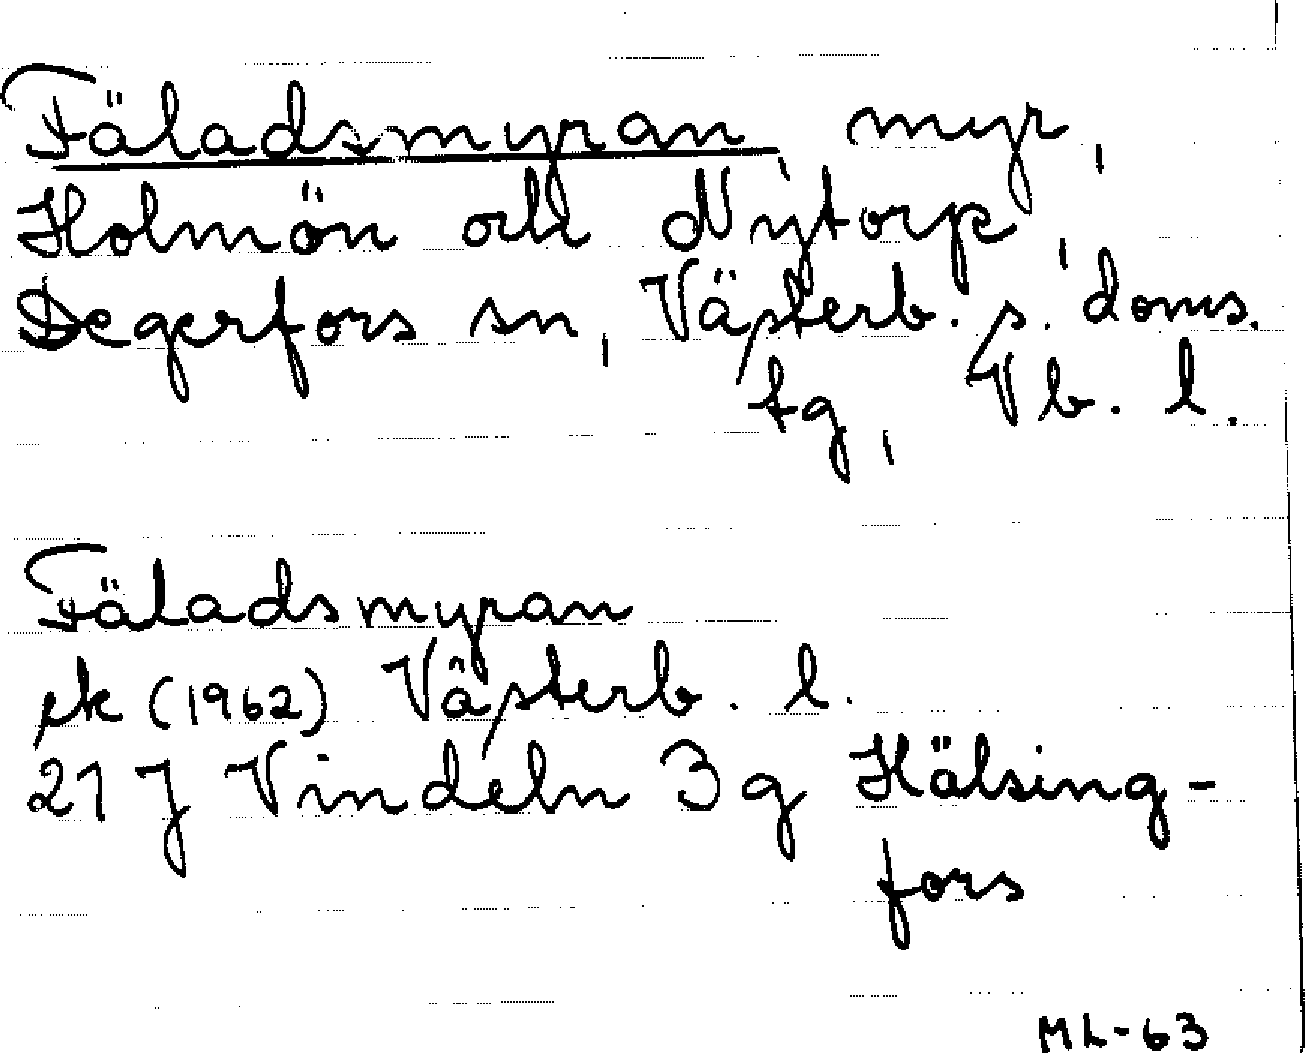 Fäladsmyran, myr,
Holmön och Nytorp,
Degerfors sn, Västerb. s. doms.
tg, Vb. l.
Fäladsmyran
ek (1962) Västerb. l.
21 J Vindeln 3 g Hälsing-
fors
ML-63